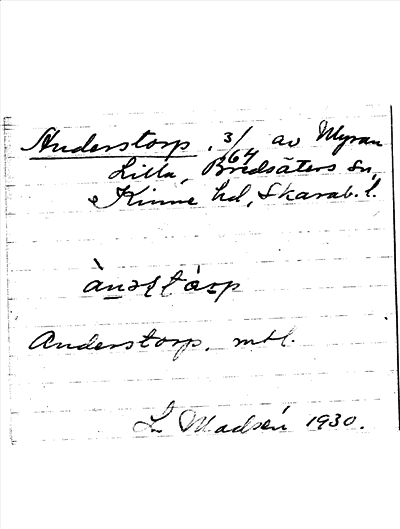 Anderstorp, 3/64 av Myran
Lilla, Bredsäters sn,
Kinne hd, Skarab. l.
Anderstorp, mtl.
L. Madsén 1930.